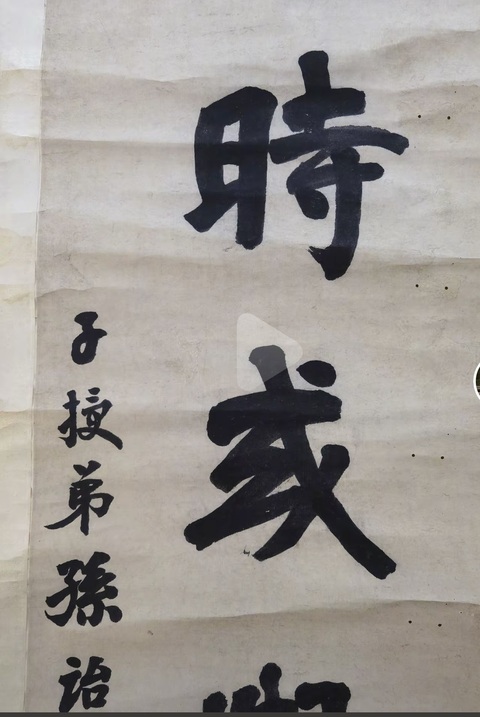 時或
子授弟孫詒